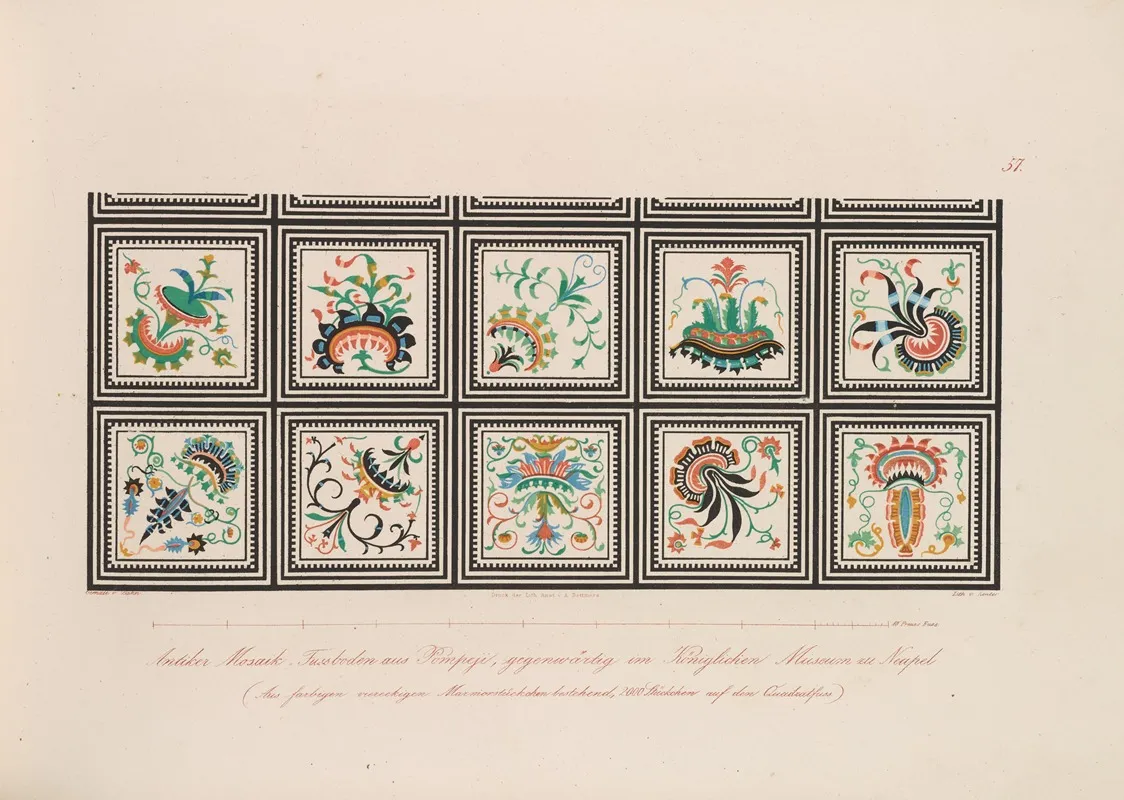 57.
Druck der Lith. Anst. v. L. Sachse
Lith. v.
10 Preuss. Fuss
Antiker Mosaik Fussboden aus Pompeji, gegenwärtig im Königlichen Museum zu Neapel
(Aus farbigen viereckigen Marmorstückchen bestehend, 2000 Stückchen auf den Quadratfuss)